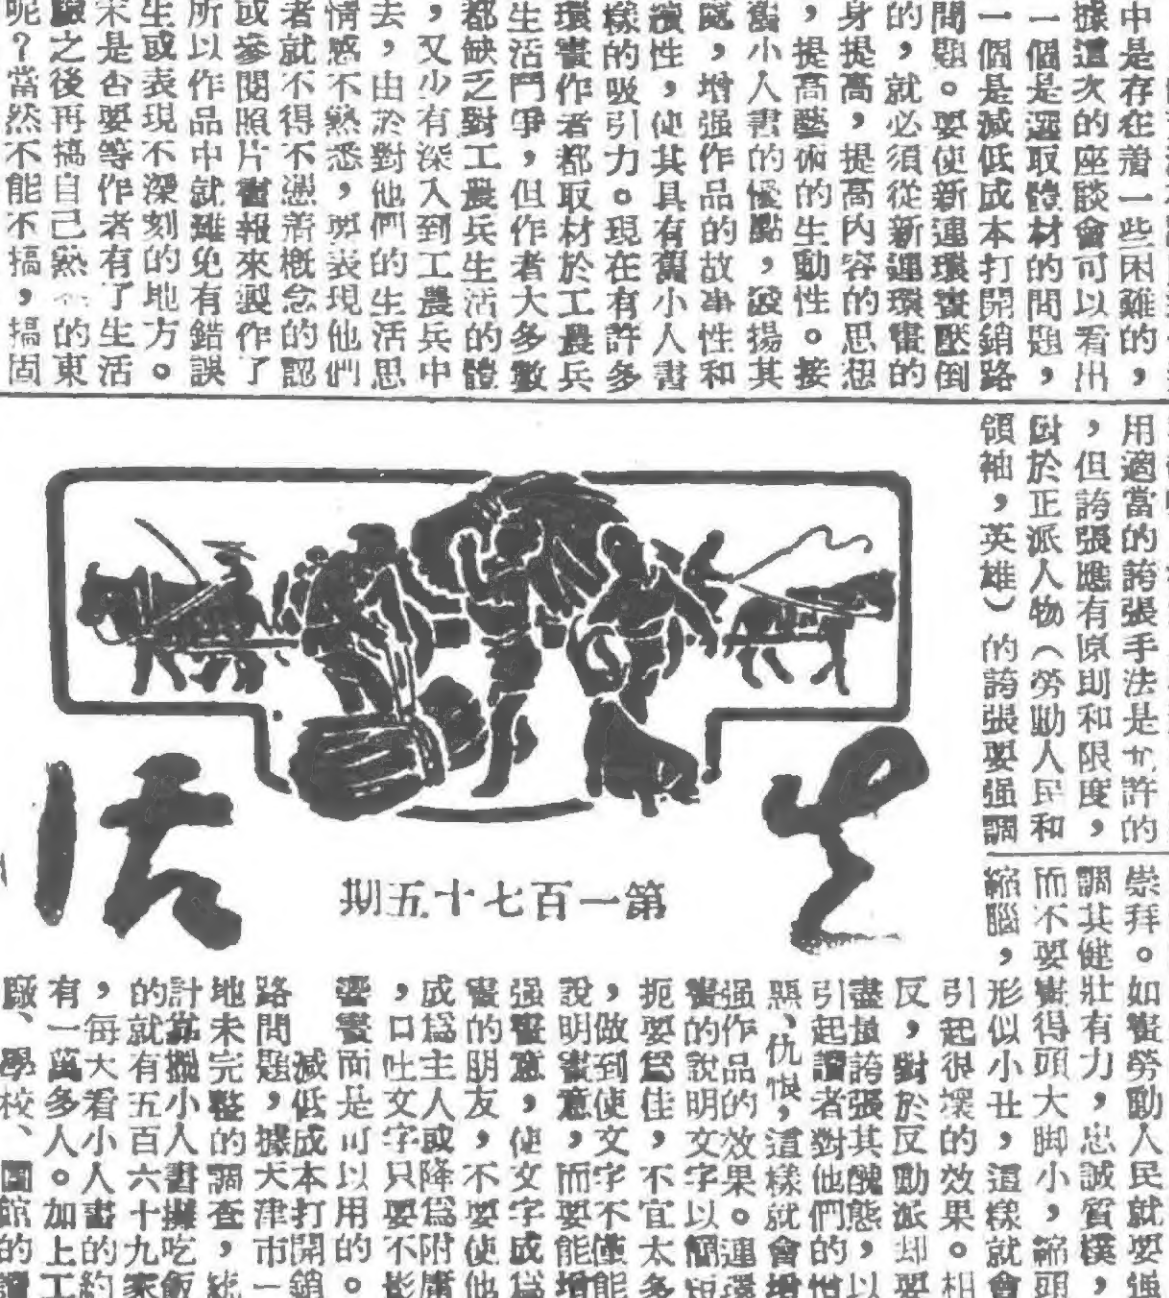 中是存在着一些困難的,
據這次的座談會可以看出
一個是選取體材的問題,
一個是減低成本打開銷路
問題。要使新連環畫壓倒
的,就必須從新連環畫的
身提高,提高內容的思想
,提高藝術的生動性。接
舊小人書的優點,發揚其
處,增强作品的故事性和
讀性,使其具有舊小人書
樣的吸引力。現在有許多
環畫作者都取材於工農兵
生活鬥爭,但作者大多數
都缺乏對工農兵生活的體
,又少有深入到工農兵中
去,由於對他們的生活思
情感不熟悉,要表現他們
者就不得不憑着概念的認
或參閱照片畫報來製作了
所以作品中就難免有錯誤
生或表現不深刻的地方。
末是否要等作者有了生活
驗之後再搞自己熟的東
呢?當然不能不搞,搞固
用適當的誇張手法是允許的
,但誇張應有原則和限度,
對於正派人物(勞動人民和
領袖,英雄)的誇張要强調
生活
第一百七十五期
崇拜。如畫勞動人民就要强
調其健壯有力,忠誠質樸,
而不要畫得頭大脚小,縮頭
縮腦,形似小丑,這樣就會
引起很壞的效果。相
反,對於反動派却要
盡量誇張其醜態,以
引起讀者對他們的憎
惡、仇恨,這樣就會增
强作品的效果。連環
畫的說明文字以簡短
扼要爲佳,不宜太多
,做到使文字不僅能
說明畫意,而要能增
强畫意,使文字成爲
畫的朋友,不要使他
成爲主人或降爲附庸
,口吐文字只要不影
響畫面是可以用的。
減低成本打開銷
路問題,據天津市一
地未完整的調查,統
計靠擺小人書攤吃飯
的就有五百六十九家
,每天看小人書的約
有一萬多人。加上工
廠、學校、圖館的讀